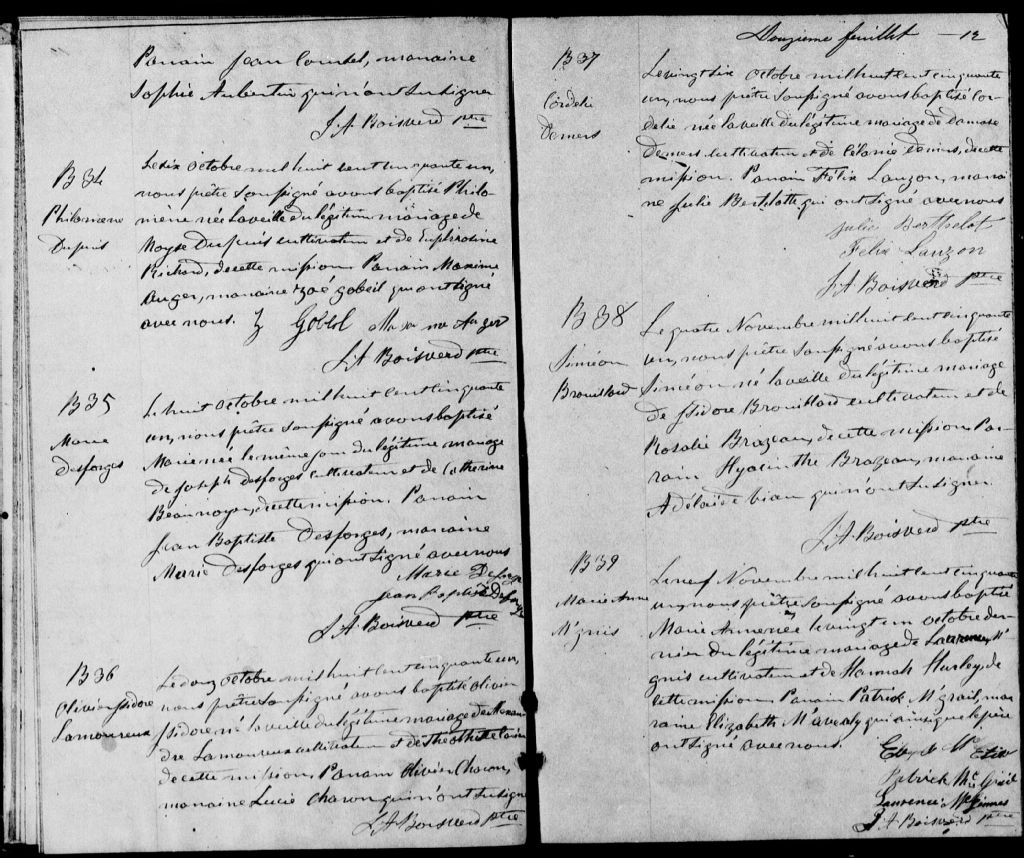 Parain Jean Coutel, maraine
Sophie Aubertin qui n'ont su signer
J A Boisverd ptre
B 34
Philomène
Dupuis
Le six octobre mil huit cent cinquante un,
nous prêtre soussigné avons baptisé Philo
mène née la veille du légitime mariage de
Moyse Dupuis cultivateur et de Euphrosine
Richard, de cette mission Parain Maxime
Auger, maraine Zoé Gobeil qui ont signé
avec nous. Z Gobiel Maxime Auger
J A Boisverd ptre
B 35
Marie
Desforges
Le huit octobre mil huit cent cinquante
un, nous prêtre soussigné avons baptisé
Marie née le même jour du légitime mariage
de Joseph Desforges cultivateur et de Catherine
Beaunoyer, de cette mission. Parain
Jean Baptiste Desforges, maraine
Marie Desforges qui ont signé avec nous
Marie Desforges
Jean Baptiste Desforges
J A Boisverd ptre
B 36
Olivier Isidore
Lamoureux
Le douze octobre mil huit cent cinquante un,
nous prêtre soussigné avons baptisé Olivier
Isidore, né la veille du légitime mariage de Alexan
dre Lamoureux cultivateur et de
de cette mission, Parain Olivier Charon,
maraine Lucie Charon qui n'ont su signer
J A Boisverd ptre
Douzieme feuillet — 12
B 37
Cordelie
Demers
Le vingt six octobre mil huit cent cinquante
un, nous prêtre soussigné avons baptisé Cor
delie née la veille du légitime mariage de Damase
Demers cultivateur et de Célanie Demers, de cette
mission. Parain Félix Lauzon, marai
ne Julie Bertelotte qui ont signé avec nous
Julie Berthelot
Félix Lauzon
J A Boisverd ptre
B 38
Siméon
Brouillard
Le quatre Novembre mil huit cent cinquante
un, nous prêtre soussigné avons baptisé
Siméon né la veille du légitime mariage
de Isidore Brouillard cultivateur et de
Rosalie Brazeau, de cette mission Pa-
rain Hyacinthe Brazeau, maraine
Adélaïde Viau qui n'ont su signer.
J A Boisverd ptre
B 39
Marie Anne
M'ginis
Le neuf Novembre mil huit cent cinquante
un, nous prêtre soussigné avons baptisé
Marie Anne née le vingt un octobre der-
nier du légitime mariage de Laurence M'
ginis cultivateur et de Hannah Hurley, de
cette mission Parain Patrick M'grail, ma
raine Elizabeth M'avealy qui ainsi que le père
ont signé avec nous.
Patrick McGrail
Laurence McGinnes
J A Boisverd ptre